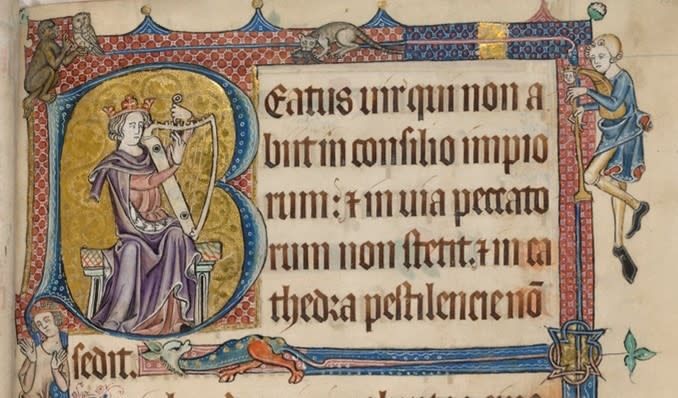 Beatus uir qui non a
biit in consilio impio
rum: ⁊ in uia peccato
rum non stetit. ⁊ in ca
thedra pestilencie nō
sedit.